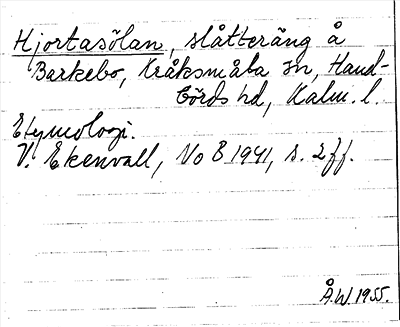 Hjortasölan, slåtteräng å
Barkebo, Kråksmåla sn, Hand-
börds hd, Kalm. l.
Etymologi.
V. Ekenvall, NoB 1941, s. 2 ff.
Å.W. 1955.